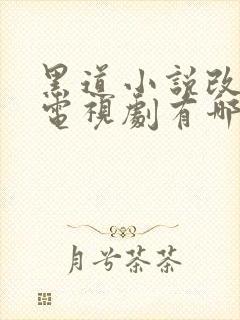 黑道小説改
電視劇有哪
月兮茶茶